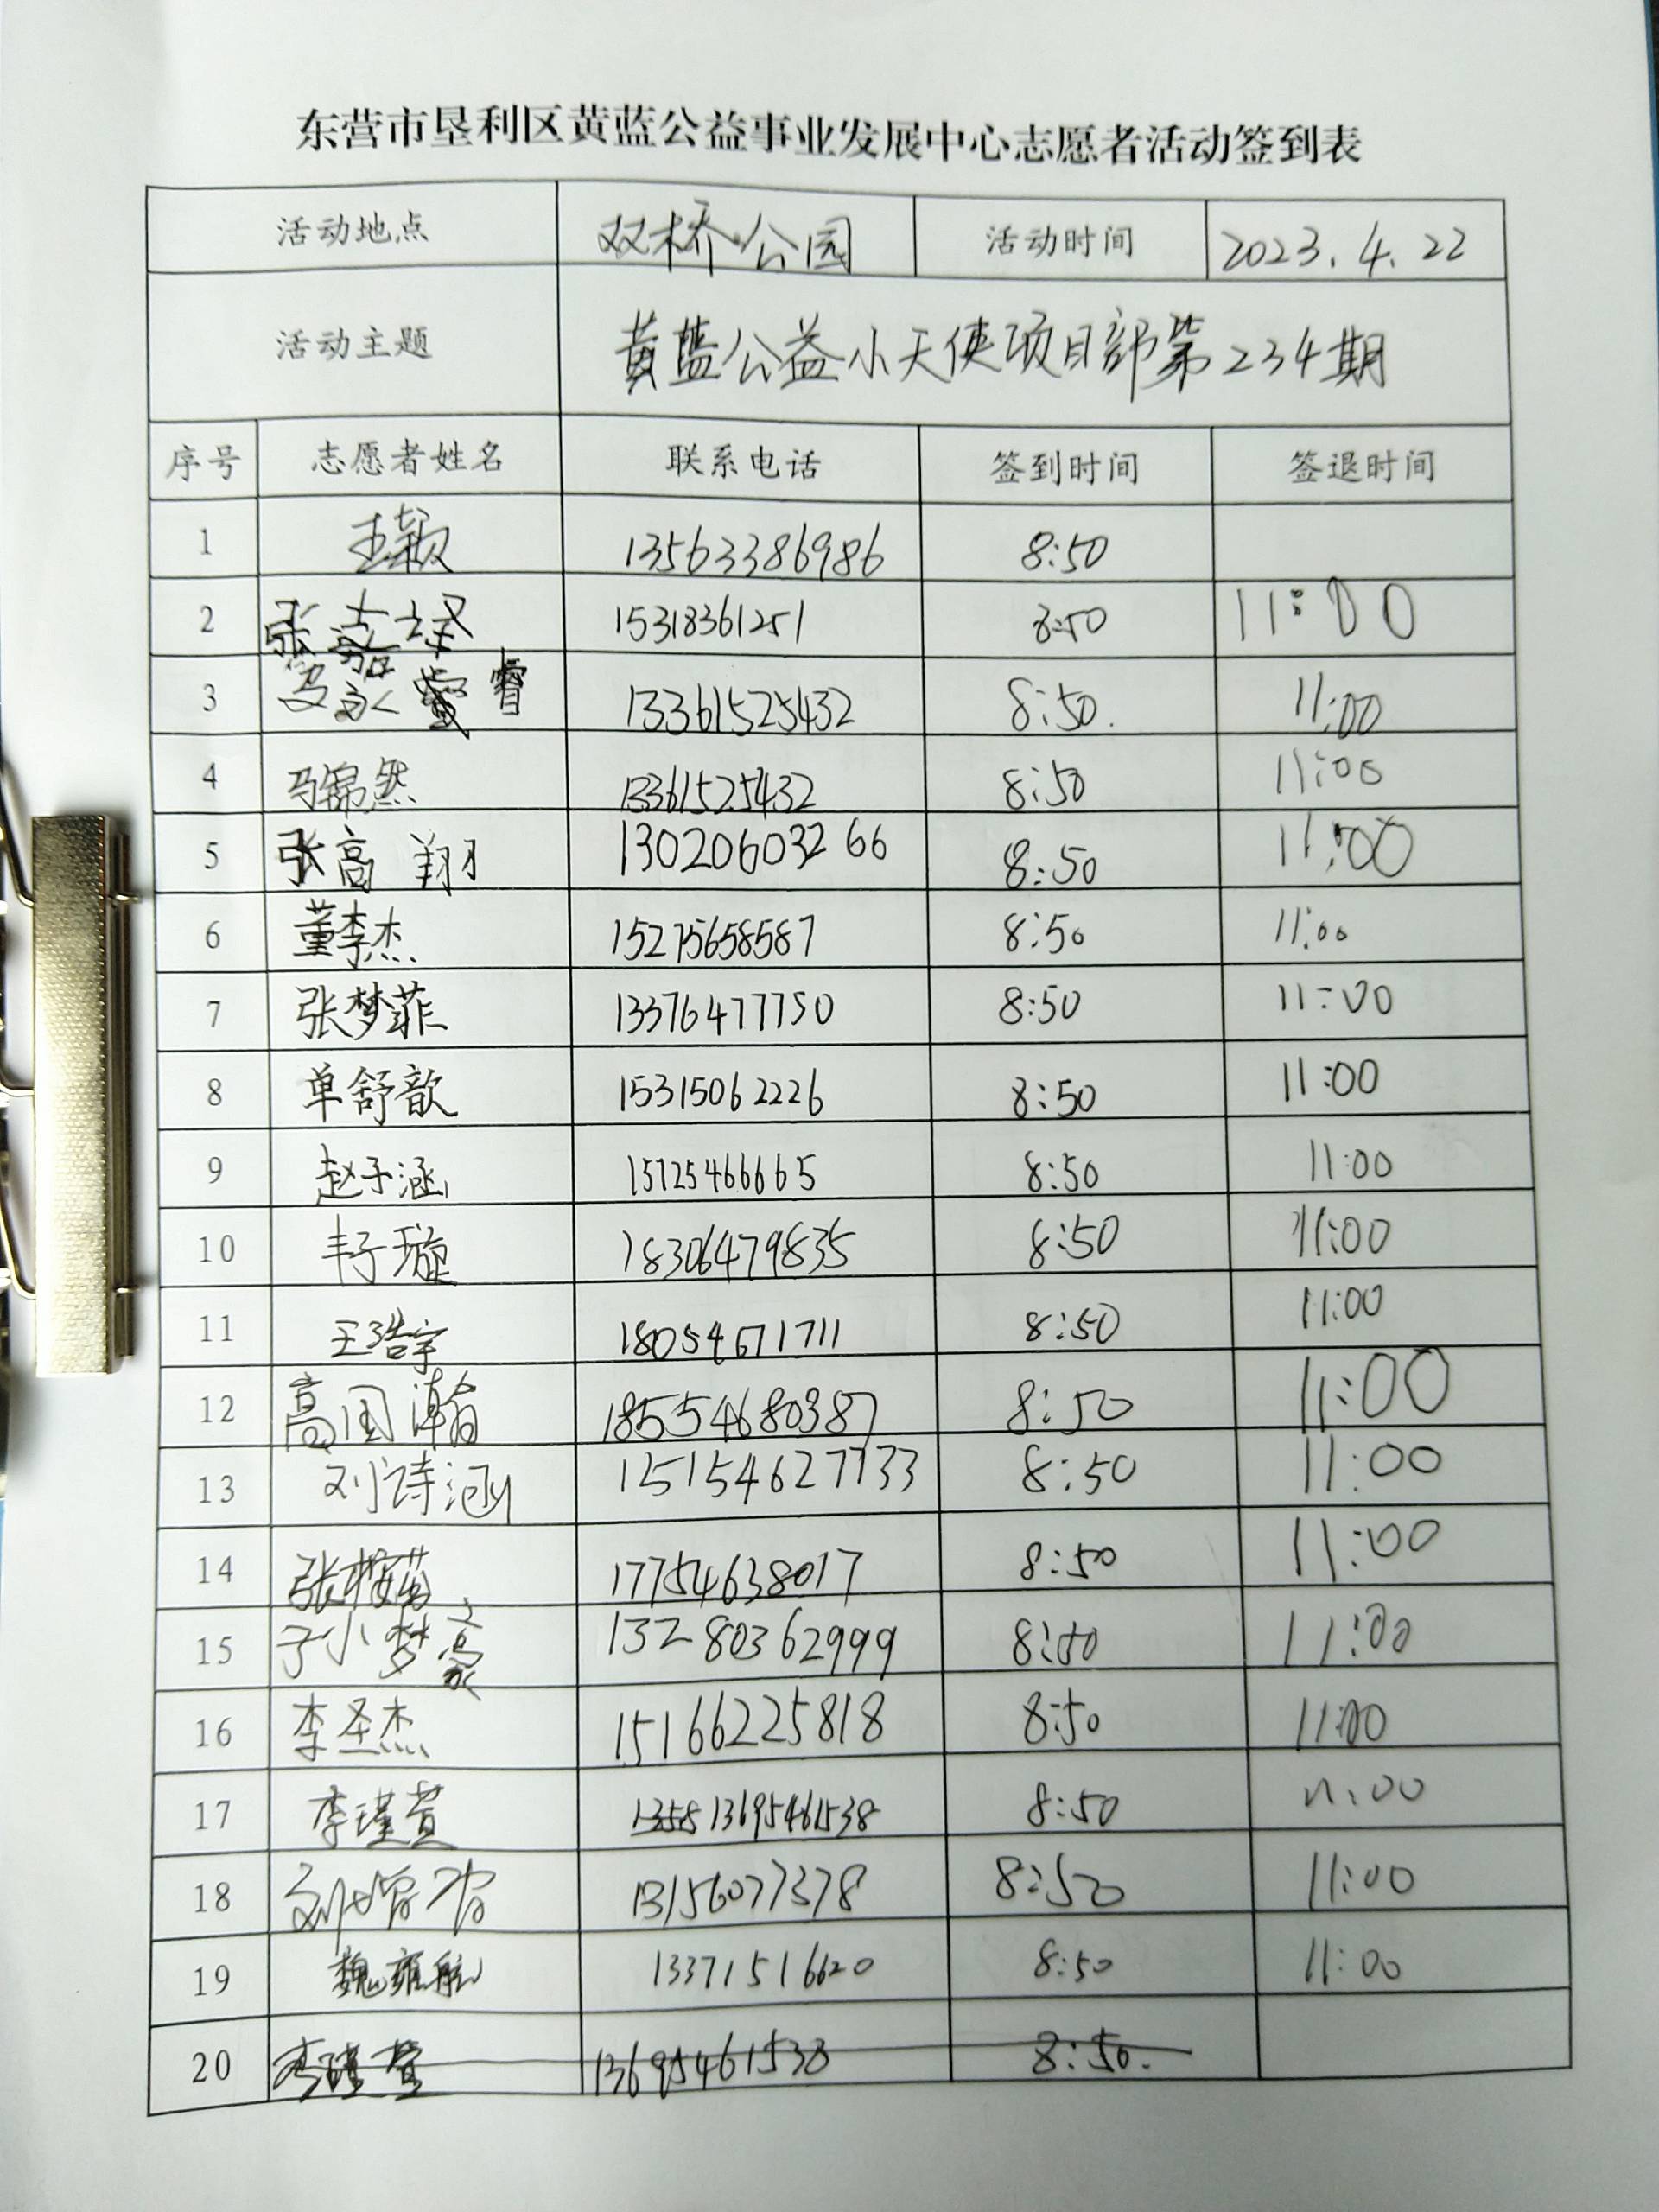 东营市垦利区黄蓝公益事业发展中心志愿者活动签到表
活动地点 双桥公园 活动时间 2023.4.22
活动主题 黄蓝公益小天使项目部第234期
序号 志愿者姓名 联系电话 签到时间 签退时间
1 王颖 13563386986 8:50
2 张嘉译 15318361251 8:50 11:00
3 睿 13361525432 8:50. 11:00
4 马锦然 13361525432 8:50 11:00
5 张高翔 13020603266 8:50 11:00
6 董李杰 15275658587 8:50 11:00
7 张梦菲 13376477750 8:50 11:00
8 单舒歆 15315062226 8:50 11:00
9 赵子涵 15725466665 8:50 11:00
10 子璇 18306479835 8:50 11:00
11 王浩宇 18054671711 8:50 11:00
12 高国瀚 18554680387 8:50 11:00
13 刘诗涵 15154627733 8:50 11:00
14 张 17754638017 8:50 11:00
15 小梦 13280362999 8:50 11:00
16 李圣杰 15166225818 8:50 11:00
17 李瑾萱 13695461538 8:50 11:00
18 刘 13156077378 8:50 11:00
19 魏雍航 13371516620 8:50 11:00
20 李瑾萱 13695461538 8:50.